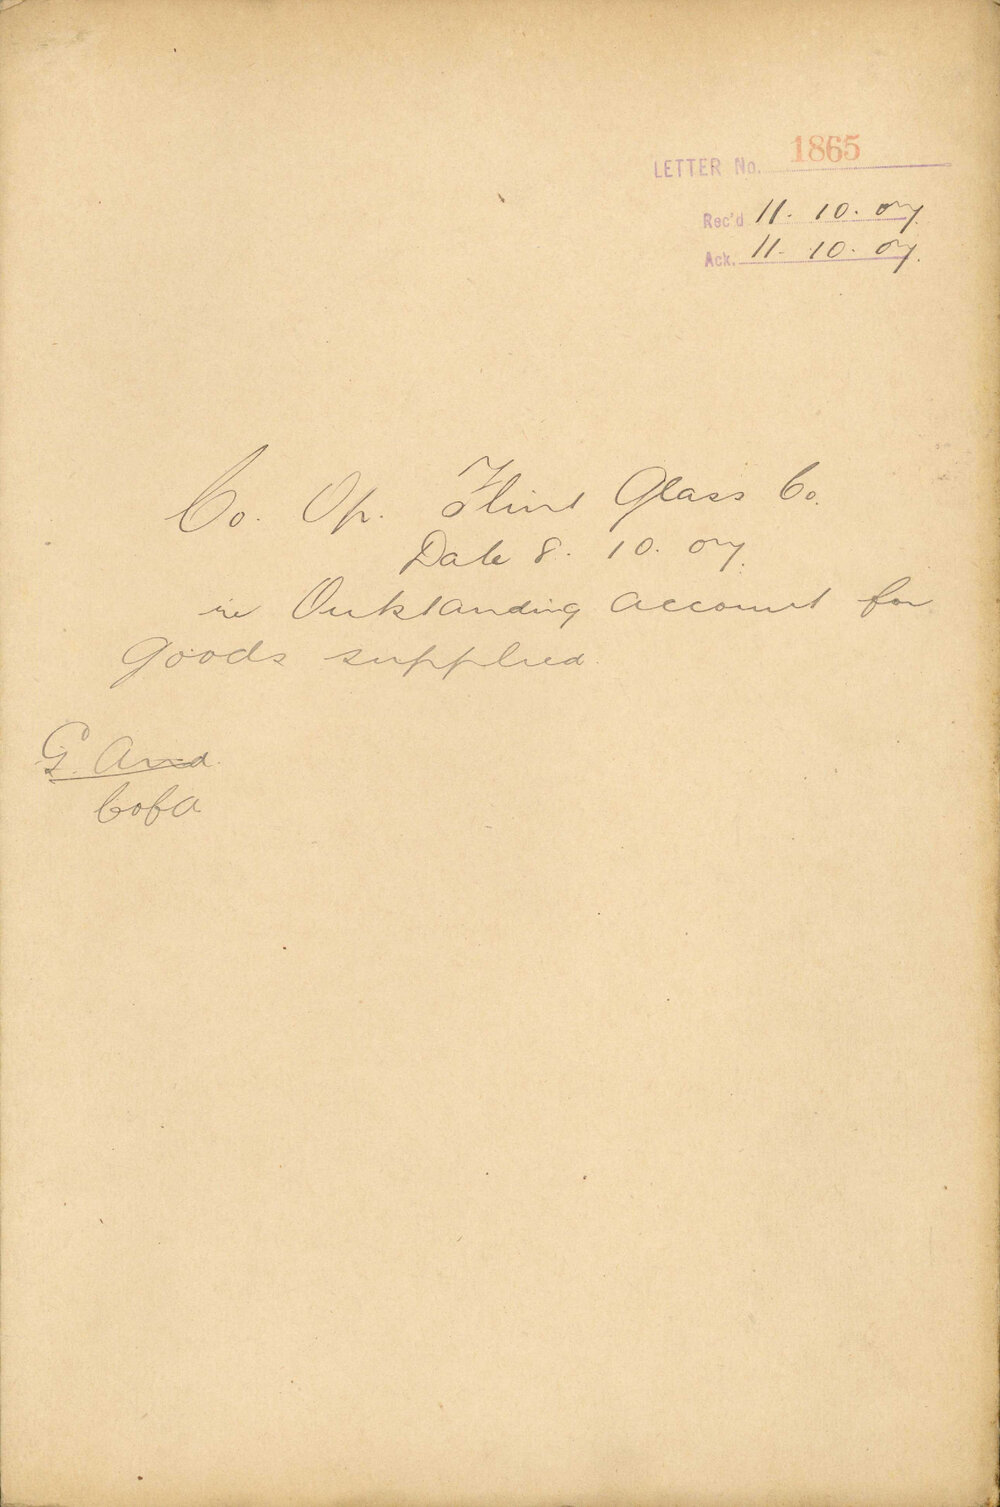 LETTER No. 1865
Rec'd 11. 10. 07.
Ack. 11. 10. 07.
Co. Op. Flint Glass Co.
Date 8. 10. 07.
re Outstanding account for
goods supplied.
G.
CofA